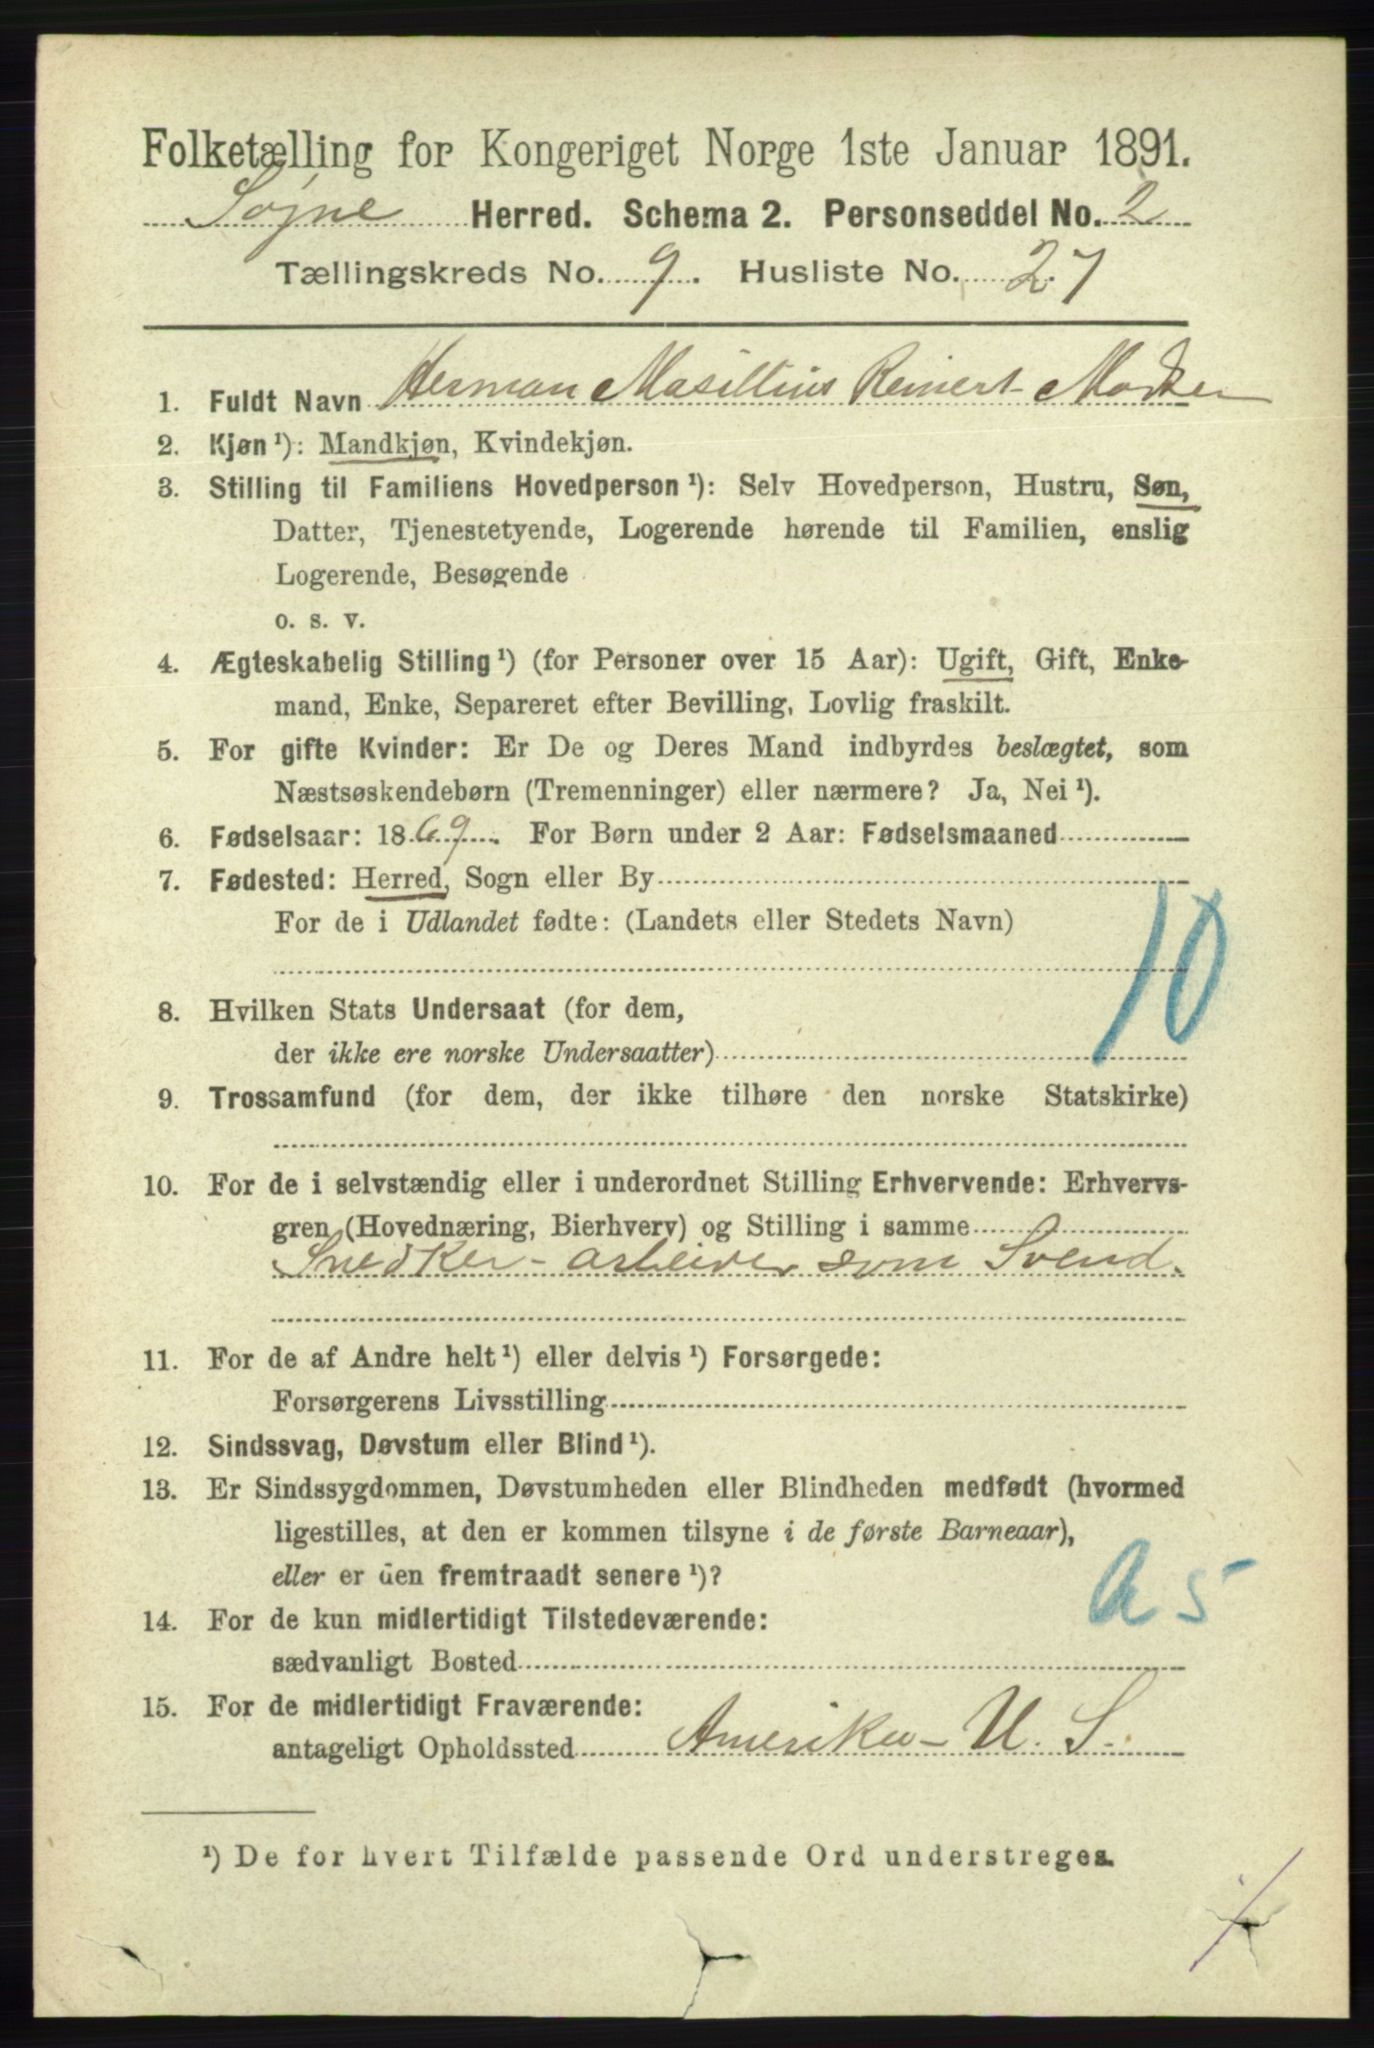 Folketælling for Kongeriget Norge 1ste Januar 1891.
Søgne Herred. Schema 2. Personseddel No. 2
Tællingskreds No. 9. Husliste No. 27
1. Fuldt Navn Herman Masillius Reinert Mørker
2. Kjøn¹): Mandkjøn, Kvindekjøn.
3. Stilling til Familiens Hovedperson¹): Selv Hovedperson, Hustru, Søn,
Datter, Tjenestetyende, Logerende hørende til Familien, enslig
Logerende, Besøgende
o. s. v.
4. Ægteskabelig Stilling¹) (for Personer over 15 Aar): Ugift, Gift, Enke-
mand, Enke, Separeret efter Bevilling, Lovlig fraskilt.
5. For gifte Kvinder: Er De og Deres Mand indbyrdes beslægtet, som
Næstsøskendebørn (Tremenninger) eller nærmere? Ja, Nei¹).
6. Fødselsaar: 1869. For Børn under 2 Aar: Fødselsmaaned
7. Fødested: Herred, Sogn eller By
For de i Udlandet fødte: (Landets eller Stedets Navn)
10
8. Hvilken Stats Undersaat (for dem,
der ikke ere norske Undersaatter)
9. Trossamfund (for dem, der ikke tilhøre den norske Statskirke)
10. For de i selvstændig eller i underordnet Stilling Erhvervende: Erhvervs-
gren (Hovednæring, Bierhverv) og Stilling i samme
Snedker-arbeider som Svend.
11. For de af Andre helt¹) eller delvis¹) Forsørgede:
Forsørgerens Livsstilling
12. Sindssvag, Døvstum eller Blind¹).
13. Er Sindssygdommen, Døvstumheden eller Blindheden medfødt (hvormed
ligestilles, at den er kommen tilsyne i de første Barneaar),
eller er den fremtraadt senere¹)?
a 5
14. For de kun midlertidigt Tilstedeværende:
sædvanligt Bosted
15. For de midlertidigt Fraværende:
antageligt Opholdssted Amerika - U. S.
¹) De for hvert Tilfælde passende Ord understreges.